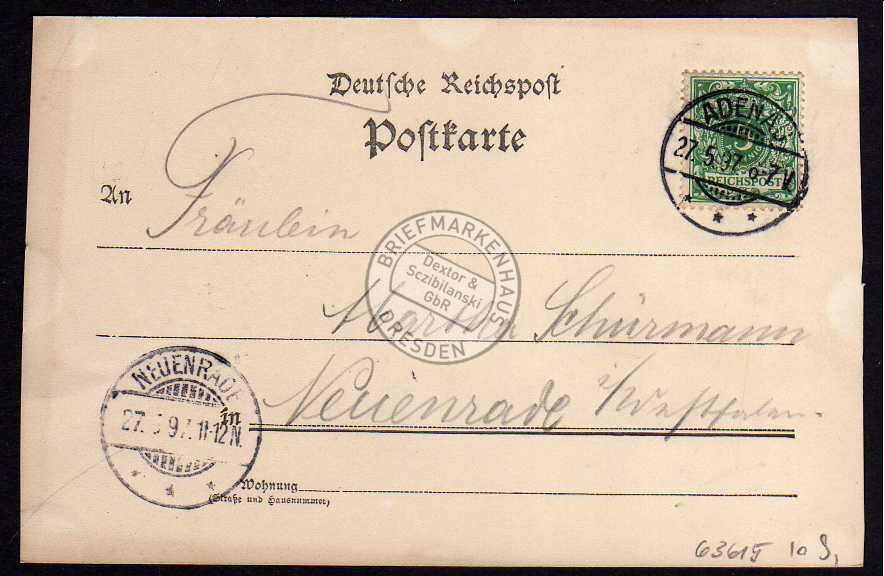 Deutsche Reichspost
Postkarte
ADENAU
27.5.97 6-7V.
REICHSPOST
An
Fräulein
BRIEFMARKENHAUS
Dextor &
Sczibilanski
GbR
DRESDEN
Martha Schürmann
NEUENRADE
27. 5 97. 11-12N.
in
Neuenrade i/Westfalen.
Wohnung
(Straße und Hausnummer)
63615 10